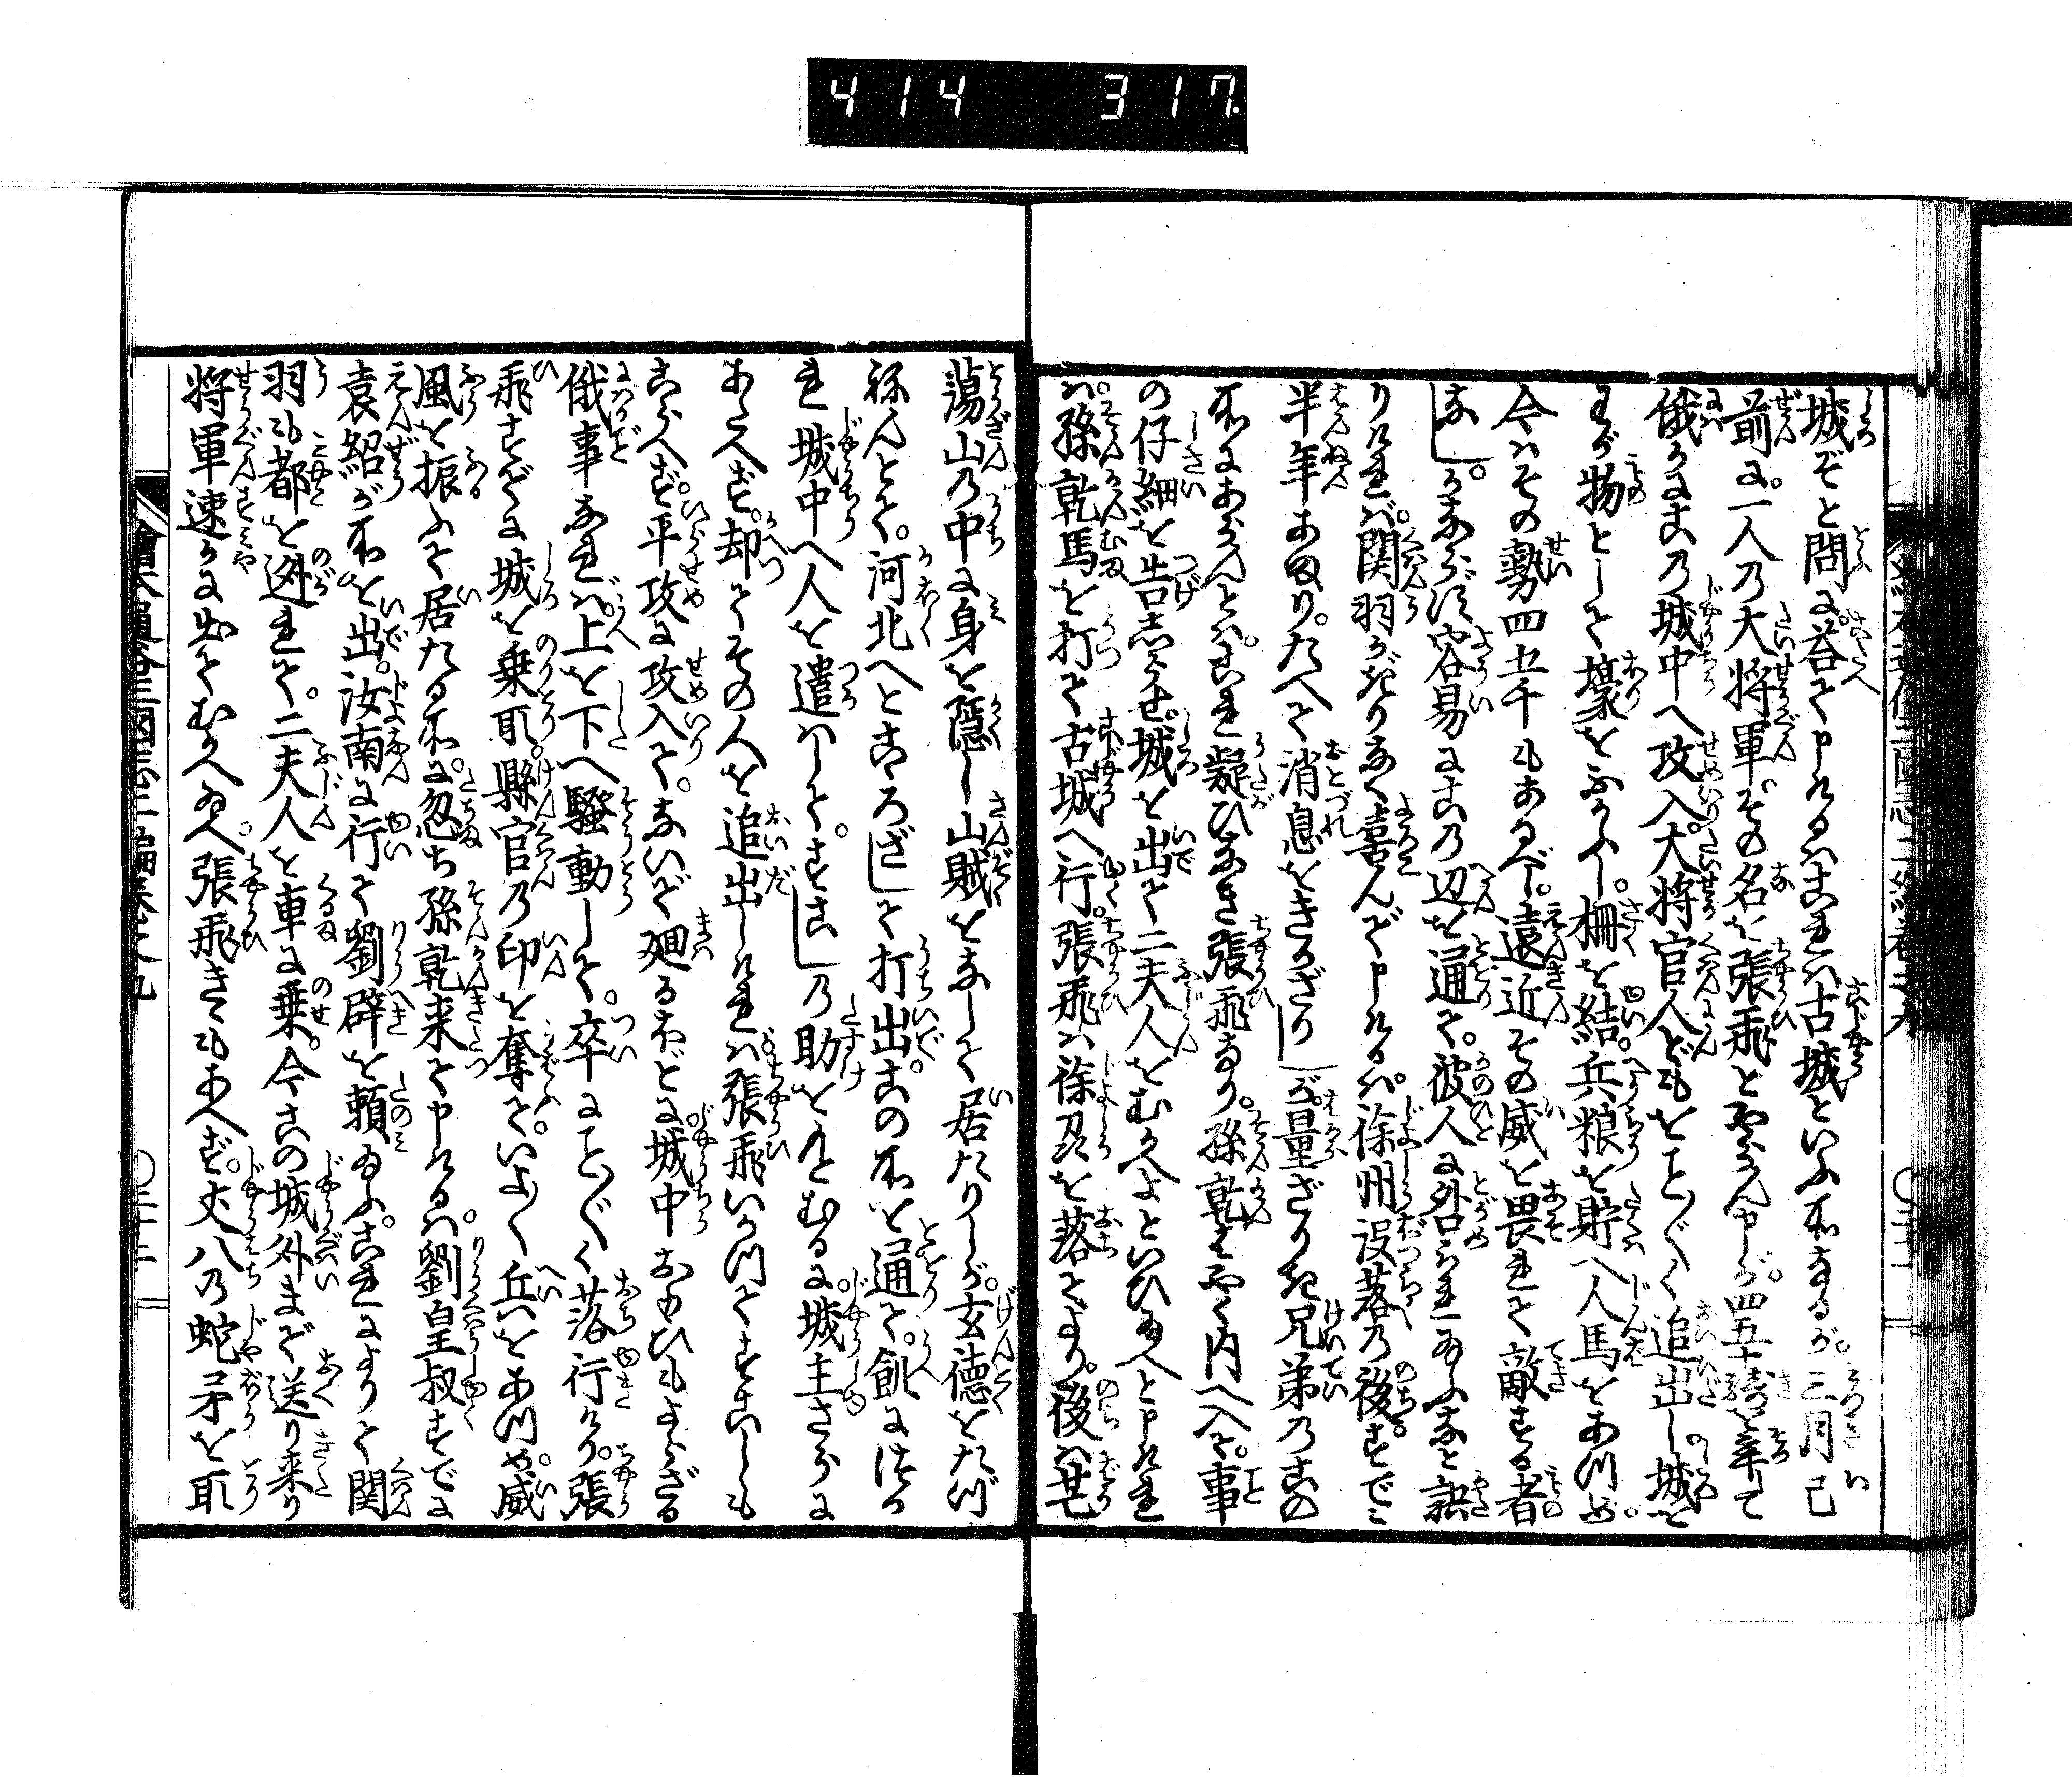 414 317
城ぞと問に答て申けるはこれは古城といふ所なるが三月已
前に一人の大将軍その名を張飛と云人申が四五十騎を率て
俄にこの城中へ攻入大将官人どもをこと〴〵く追出し城を
わが物として壕をふかくし柵を結兵粮を貯へ人馬をあつめ
今はその勢四五千もあるべし遠近その威を畏れて敵する者
なしかならず容易にこの辺を通て彼人に咎られ給ふなと教
りければ関羽かぎりなく喜んで申けるは徐州没落の後すでに
半年あまりたへて消息をきかざりしが量ざりき兄弟のこの
所にあらんとはこれ疑ひなき張飛なり孫乾はやく内へ入て事
の仔細を告しらせ城を出て二夫人をむかへよといひ給へと申ければ
孫乾馬を打て古城へ行張飛は徐州を落てより後は芒
蕩山の中に身を隠し山賊をなして居たりしが玄徳をたづ
ねんとて河北へとこころざして打出この所を通て飢に及
れ城中へ人を遣はしてすこしの助をもとむるに城主さらに
あたへず却てその人を追出しければ張飛いかつてすこしも
こらへず平攻に攻入てないず廻るほどに城中おもひもよらざる
俄事なれば上を下へ騒動して卒にこと〴〵く落行けり張
飛すでに城を乗取縣官の印を奪ていよ〳〵兵をあつめ威
風を振ふて居たる所に忽ち孫乾来て申けるは劉皇叔すでに
袁紹が所を出汝南に行て劉辟を頼給ふこれによりて関
羽も都を逃れて二夫人を車に乗今この城外まで送り来り
将軍速かに出てむかへ給へ張飛きゝもあへず丈八の蛇矛を取
繪本通俗三國志三編巻之九